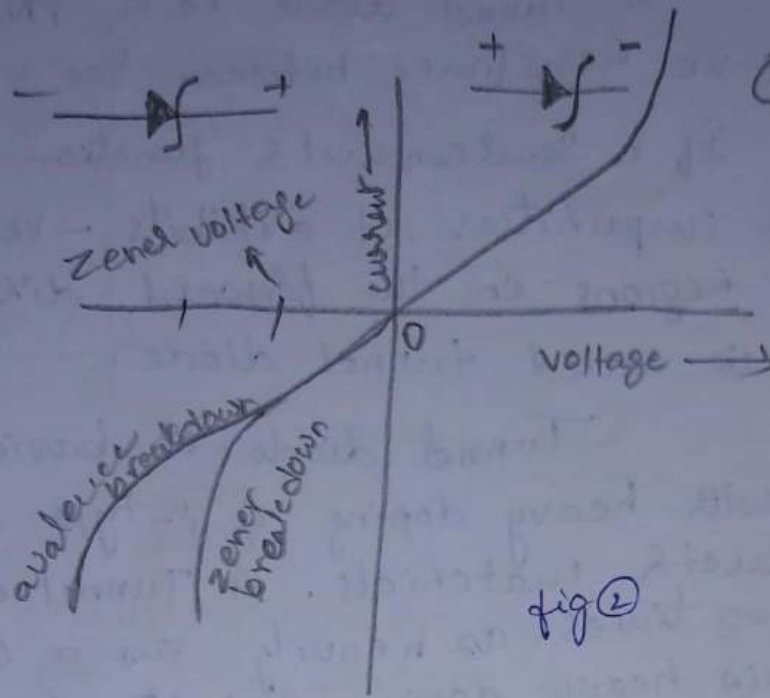 - +
+ -
Zener voltage
current →
O
voltage →
avalence
breakdown
zener
breakdown
fig ②